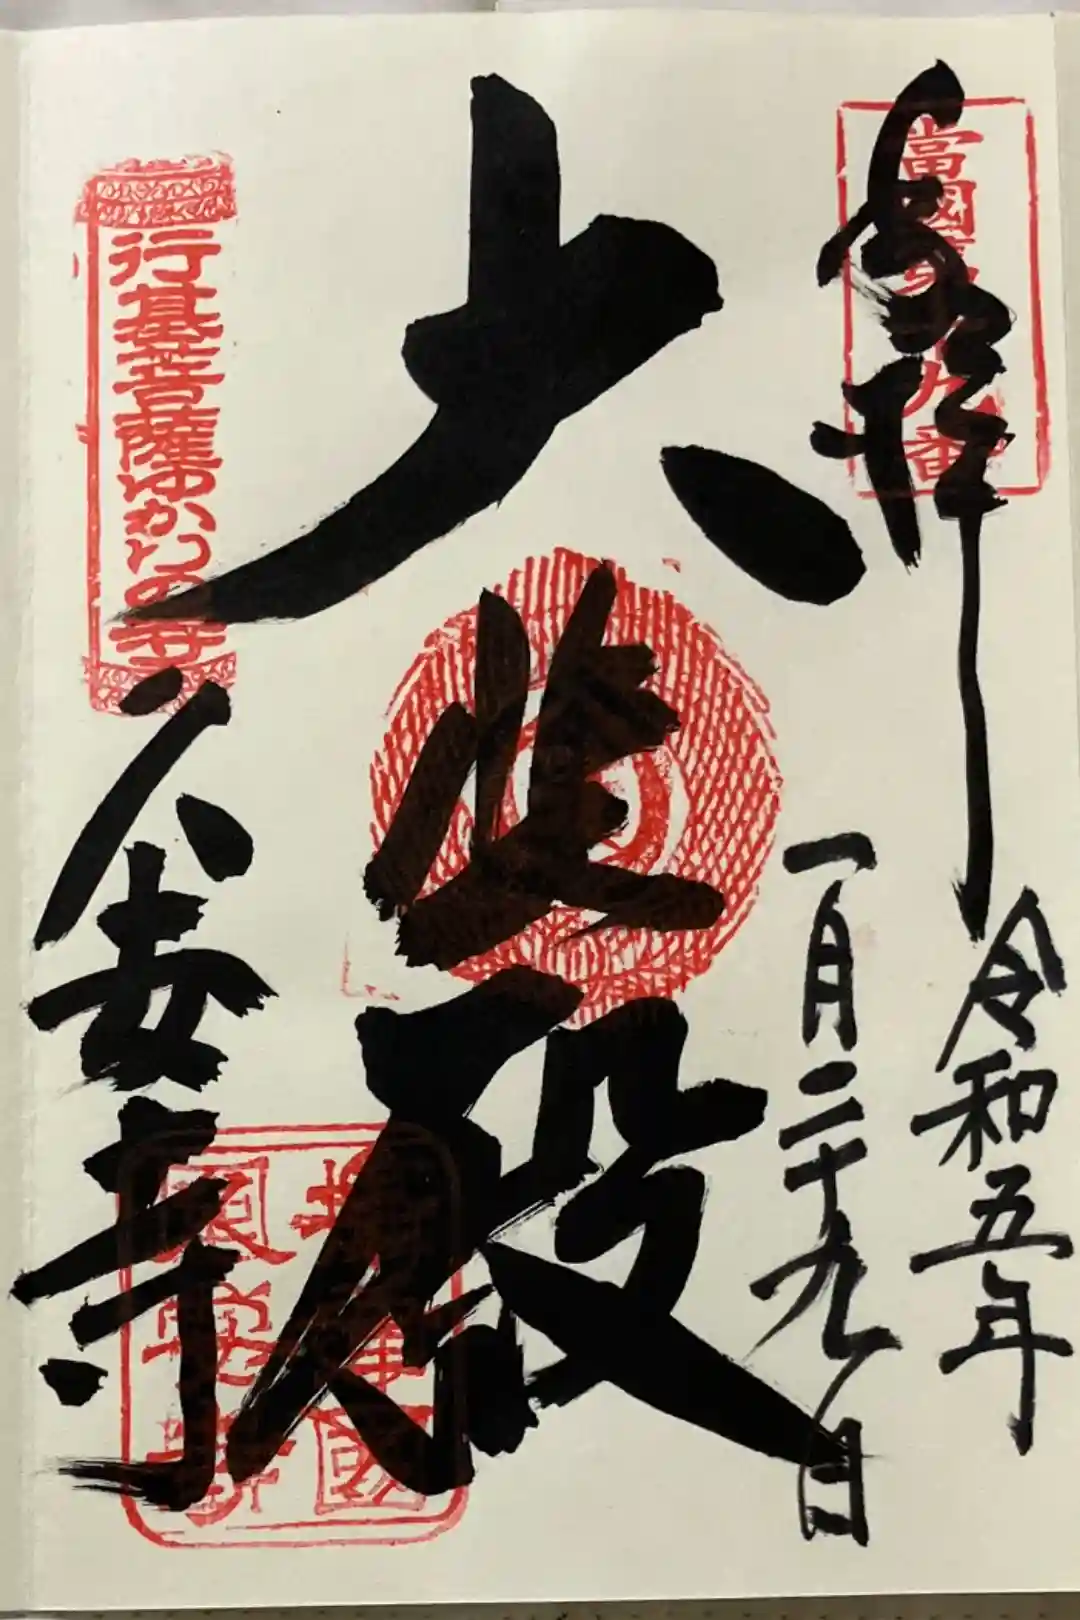 奉拝
令和五年
一月二十九日
大悲殿
久安寺
行基菩薩ゆかりの寺